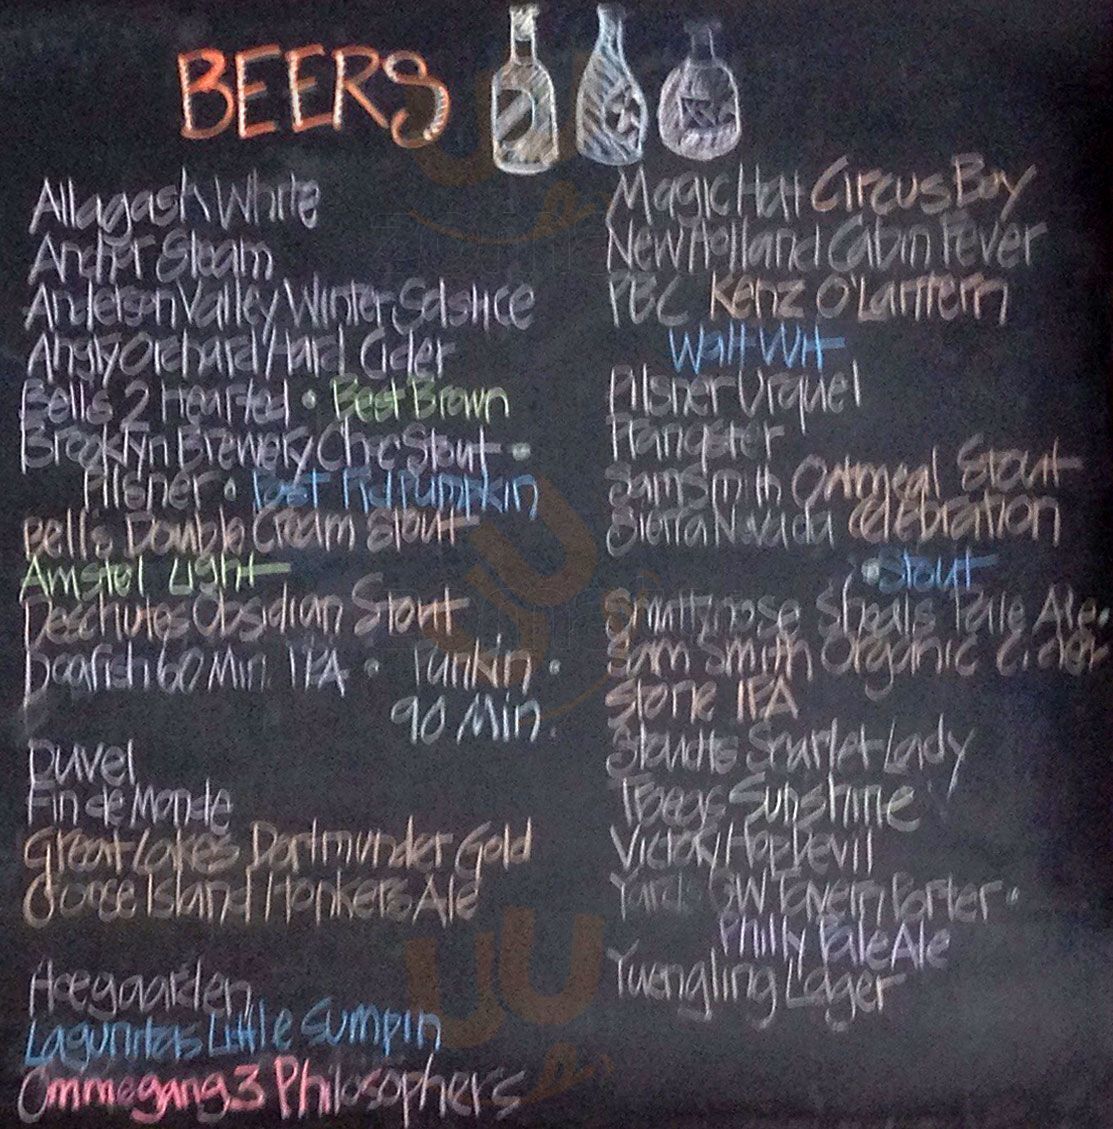 BEERS
Allagash White
Anchor Steam
Anderson Valley Winter Solstice
Angry Orchard Hard Cider
Bells 2 Hearted • Best Brown
Brooklyn Brewery Choc Stout •
Pilsner • Post Rd Pumpkin
Bells Double Cream Stout
Amstel Light
Deschutes Obsidian Stout
Dogfish 60 Min. IPA • Punkin •
90 Min.
Duvel
Fin de Monde
Great Lakes Dortmunder Gold
Goose Island Honkers Ale
Hoegaarden
Lagunitas Little Sumpin
Ommegang 3 Philosophers
Magic Hat Circus Boy
New Holland Cabin Fever
PBC Kenz O'Lantern
Walt Wit
Pilsner Urquel
Prangster
Sam Smith Oatmeal Stout
Sierra Nevada Celebration
• Stout
Smuttynose Shoals Pale Ale •
Sam Smith Organic Cider
Stone IPA
Stoudts Scarlet Lady
Troegs Sunshine
Victory Hop Devil
Yards GW Tavern Porter •
Philly Pale Ale
Yuengling Lager